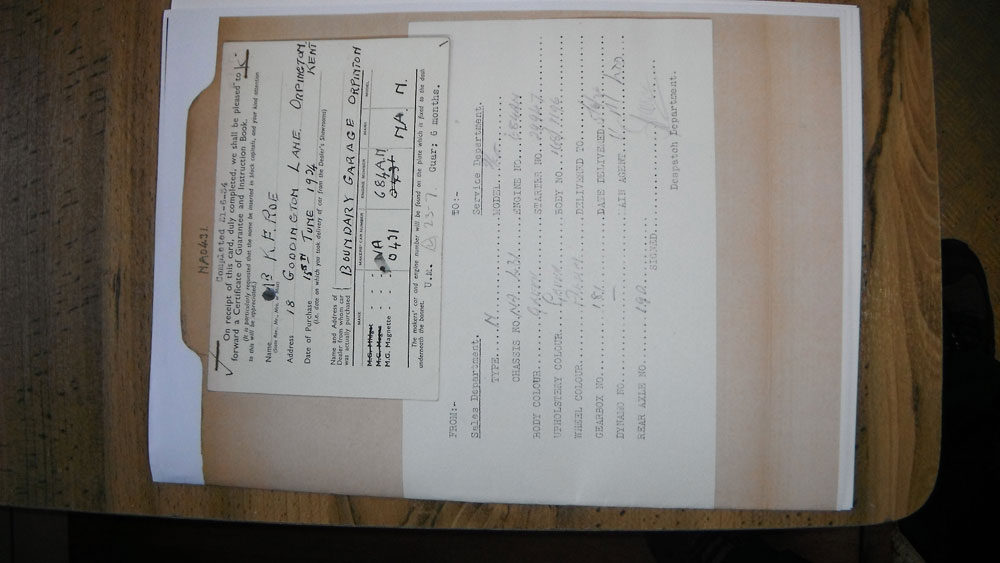 NA0431
Completed 21-6-34
On receipt of this card, duly completed, we shall be pleased to
forward a Certificate of Guarantee and Instruction Book.
(It is particularly requested that the name be inserted in block capitals, and your kind attention
to this will be appreciated.)
Name MR K.E. ROE
(State Rev., Mr., Mrs. or Miss)
Address 18 GODDINGTON LANE ORPINGTON
KENT
Date of Purchase 15TH JUNE 1934
(i.e. date on which you took delivery of car from the Dealer's Showrooms)
Name and Address of
Dealer from whom car
was actually purchased
BOUNDARY GARAGE ORPINTON
MAKE MAKERS' CAR NUMBER ENGINE NUMBER MARK MODEL
M.G. Midget
M.G. Magna
M.G. Magnette
NA
0431 684AN NA. N.
The makers' car and engine number will be found on the plate which is fixed to the dash
underneath the bonnet. U.K. 23-7. Guar; 6 months.
FROM:- TO:-
Sales Department. Service Department.
TYPE N MODEL
CHASSIS NO. ENGINE NO.
BODY COLOUR Green STARTER NO.
UPHOLSTERY COLOUR Green BODY NO.
WHEEL COLOUR Green DELIVERED TO.
GEARBOX NO. 181 DATE DELIVERED
DYNAMO NO. — AIR AGENT
REAR AXLE NO. 190
SIGNED.
Despatch Department.